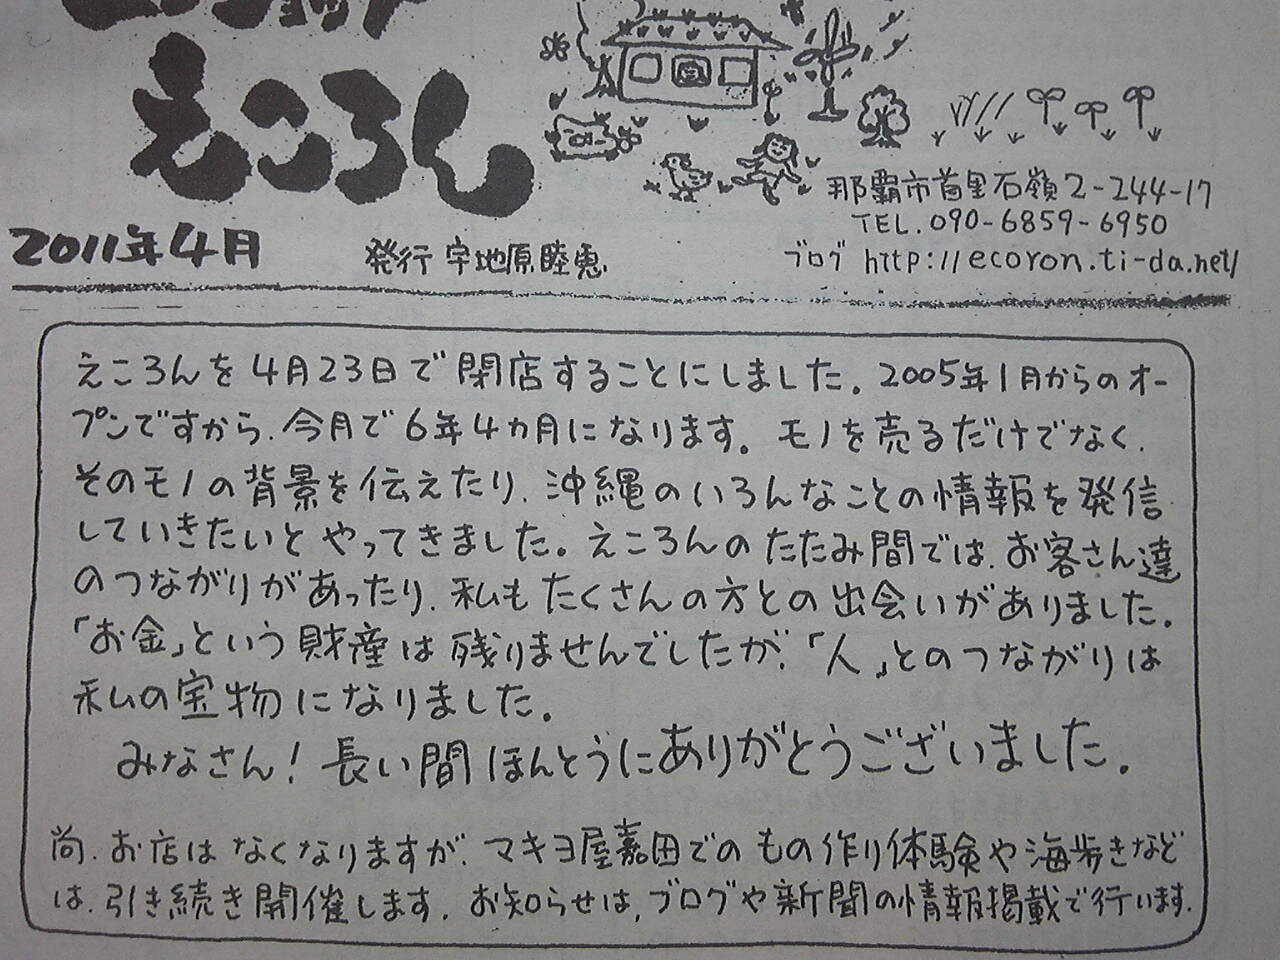 えころん
那覇市首里石嶺2-244-17
TEL.090-6859-6950
2011年4月 発行 宇地原睦恵 ブログ http://ecoron.ti-da.net/
えころんを4月23日で閉店することにしました。2005年1月からのオー
プンですから、今月で6年4ヵ月になります。モノを売るだけでなく、
そのモノの背景を伝えたり、沖縄のいろんなことの情報を発信
していきたいとやってきました。えころんのたたみ間では、お客さん達
のつながりがあったり、私もたくさんの方との出会いがありました。
「お金」という財産は残りませんでしたが、「人」とのつながりは
私の宝物になりました。
みなさん！長い間ほんとうにありがとうございました。
尚、お店はなくなりますが、マキヨ屋嘉田でのもの作り体験や海歩きなど
は、引き続き開催します。お知らせは、ブログや新聞の情報掲載で行います。